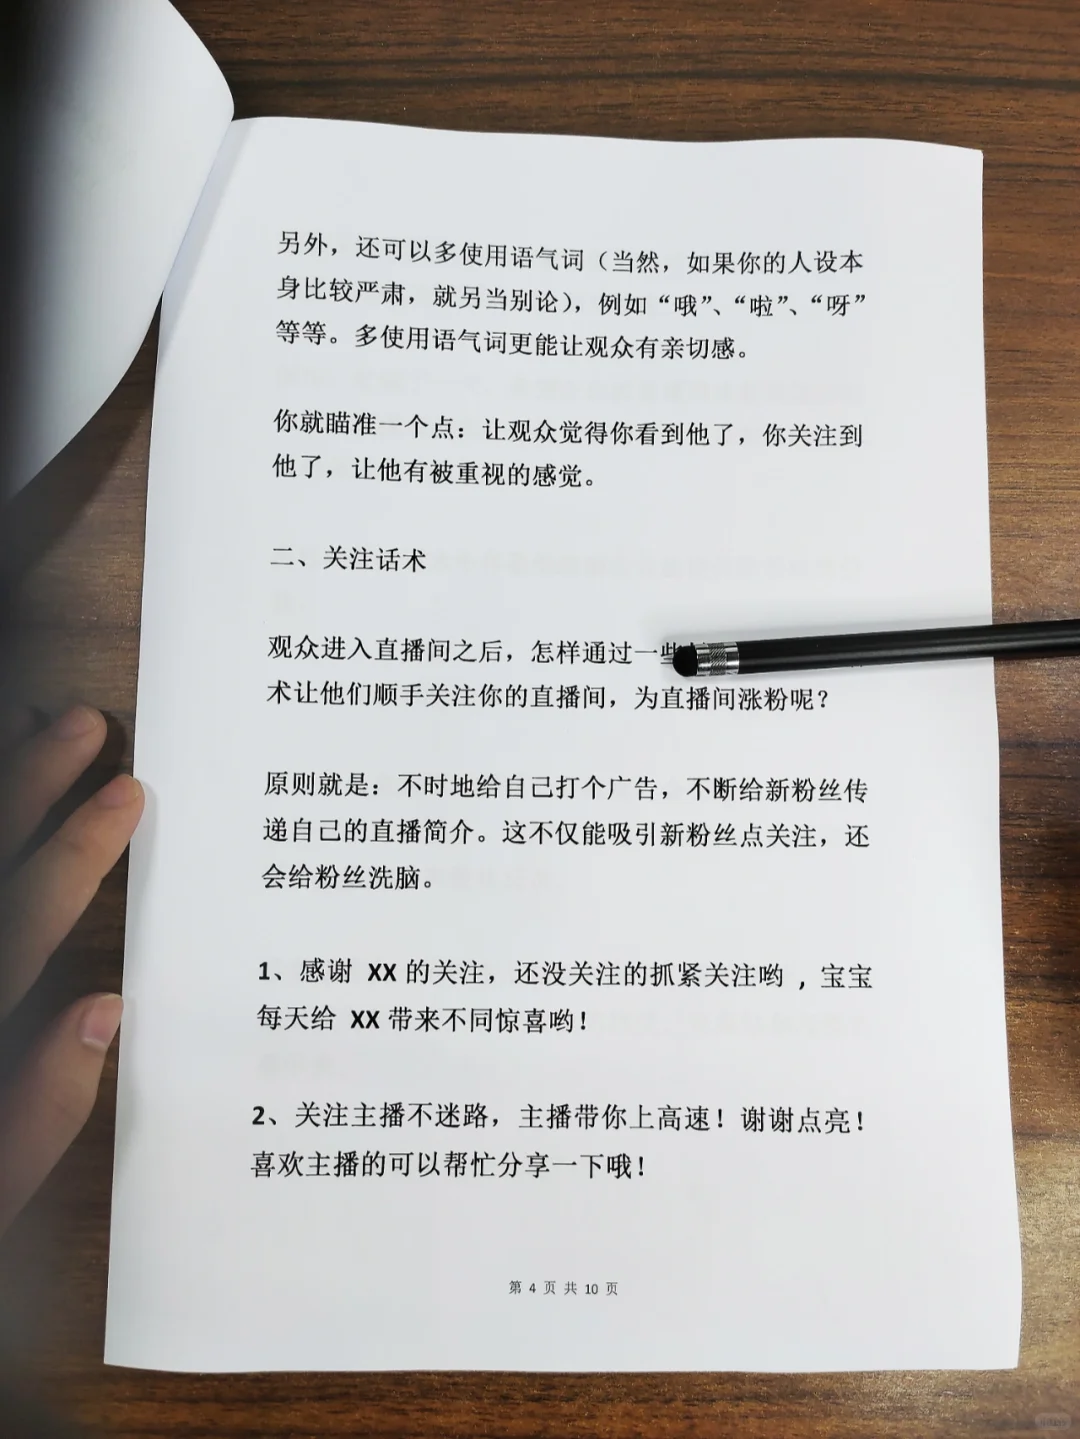 另外，还可以多使用语气词（当然，如果你的人设本
身比较严肃，就另当别论），例如“哦”、“啦”、“呀”
等等。多使用语气词更能让观众有亲切感。
你就瞄准一个点：让观众觉得你看到他了，你关注到
他了，让他有被重视的感觉。
二、关注话术
观众进入直播间之后，怎样通过一些
术让他们顺手关注你的直播间，为直播间涨粉呢？
原则就是：不时地给自己打个广告，不断给新粉丝传
递自己的直播简介。这不仅能吸引新粉丝点关注，还
会给粉丝洗脑。
1、感谢 XX 的关注，还没关注的抓紧关注哟 , 宝宝
每天给 XX 带来不同惊喜哟！
2、关注主播不迷路，主播带你上高速！谢谢点亮！
喜欢主播的可以帮忙分享一下哦！
第 4 页 共 10 页